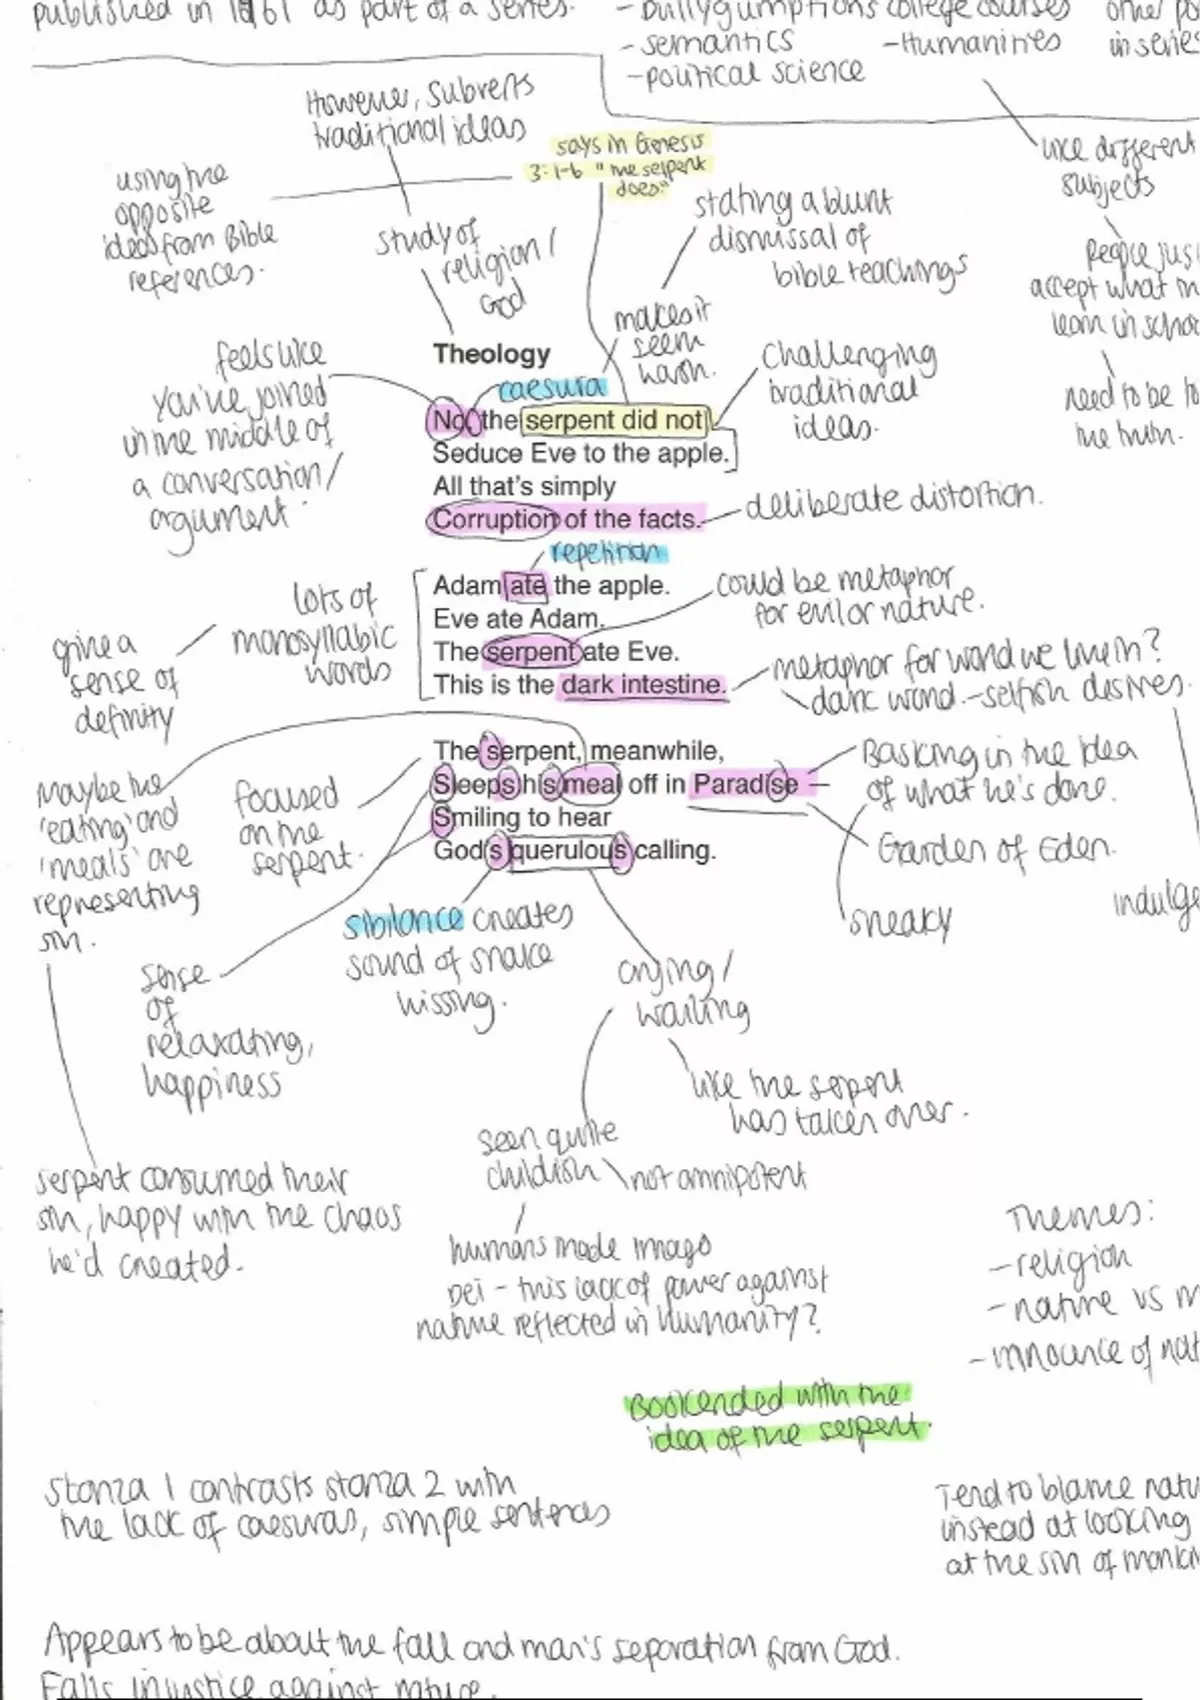 published in 1961 as part of a series.
- bullygumptions college courses
- semantics
- Humanities
- political science
other po
in series
However, subverts
traditional ideas
says in Genesis
3:1-6 "the serpent
does."
using the
opposite
ideas from Bible
references.
study of
religion/
God
stating a blunt
dismissal of
bible teachings
like different
subjects
People jus
accept what th
learn in schoo
need to be to
the truth.
makes it
seem
harsh.
feels like
you've joined
in the middle of
a conversation/
argument.
Challenging
traditional
ideas.
Theology
caesura
No, the serpent did not
Seduce Eve to the apple.
All that's simply
Corruption of the facts.
deliberate distortion.
repetition
Adam ate the apple.
Eve ate Adam.
The serpent ate Eve.
This is the dark intestine.
lots of
monosyllabic
words
give a
sense of
definity
could be metaphor
for evil or nature.
metaphor for world we live in?
dark world - selfish desires.
The serpent, meanwhile,
Sleeps his meal off in Paradise –
Smiling to hear
God's querulous calling.
Maybe the
'eating' and
'meals' are
representing
sin.
focused
on the
serpent.
Basking in the idea
of what he's done.
Garden of Eden.
sneaky
indulge
sibilance creates
sound of snake
hissing.
sense
of
relaxating,
happiness
crying/
wailing
like the serpent
has taken over.
seen quite
childish
not omnipotent
serpent consumed their
sin, happy with the chaos
he'd created.
humans made imago
Dei - this lack of power against
nature reflected in humanity?
Themes:
- religion
- nature vs m
- innocence of nat
Bookended with the
idea of the serpent.
Stanza 1 contrasts stanza 2 with
the lack of caesuras, simple sentences
Tend to blame natu
instead at looking
at the sin of mankin
Appears to be about the fall and man's separation from God.
Falls injustice against nature.